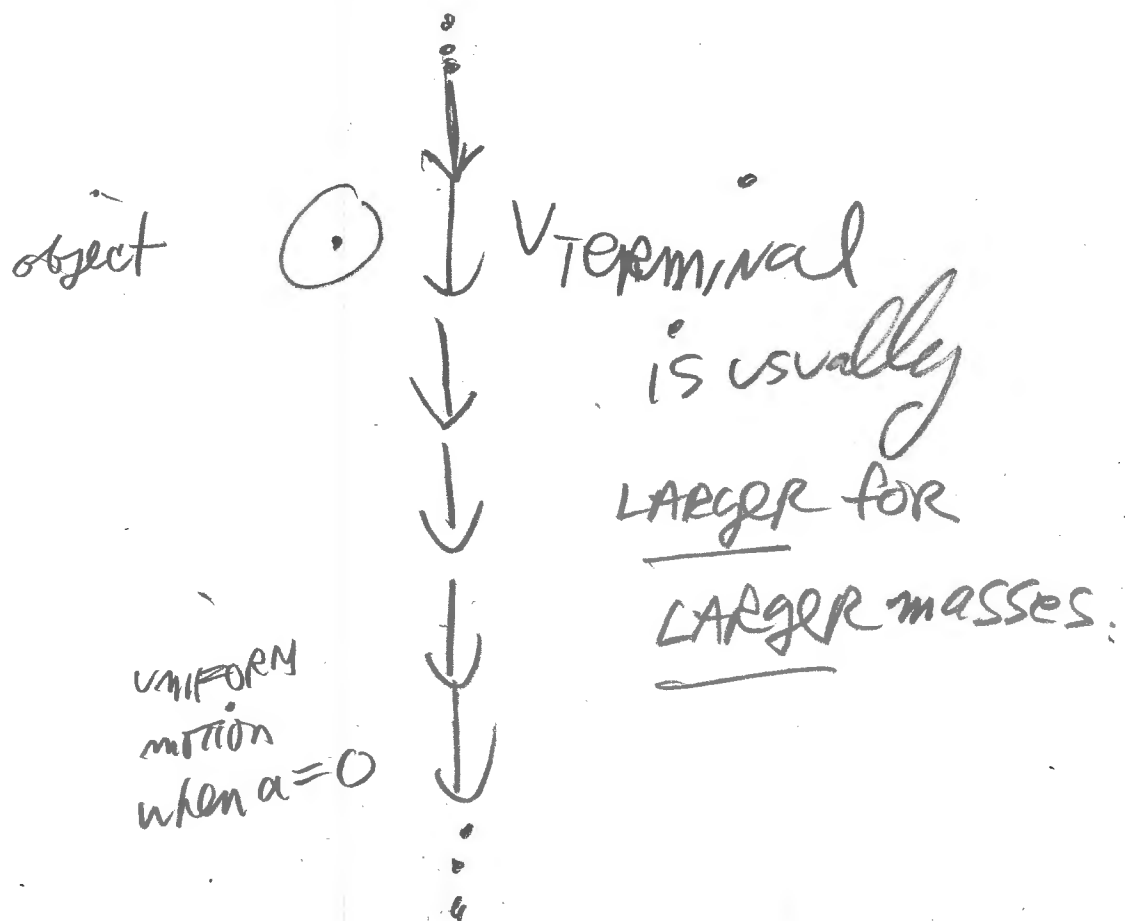 object
V TERMINAL
is usually
LARgeR for
LARgeR masses.
UNIFORM
motion
when a = 0